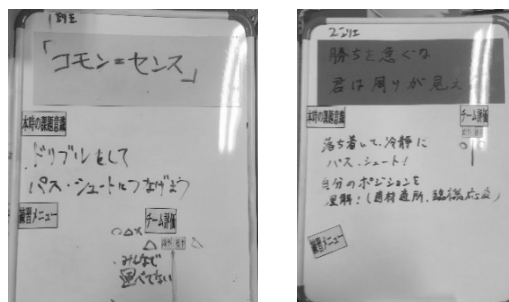 1班
「コモン=センス」
本時の課題意識
ドリブルをして
パス・シュートにつなげよう
練習メニュー
チーム評価
○△×
△
みんなで
運べてない
2班
勝ちを急ぐな
君は周りが見え
本時の課題意識
チーム評価
落ち着いて、冷静に
パス・シュート!
自分のポジションを
理解!(適材適所、臨機応変)
練習メニュー